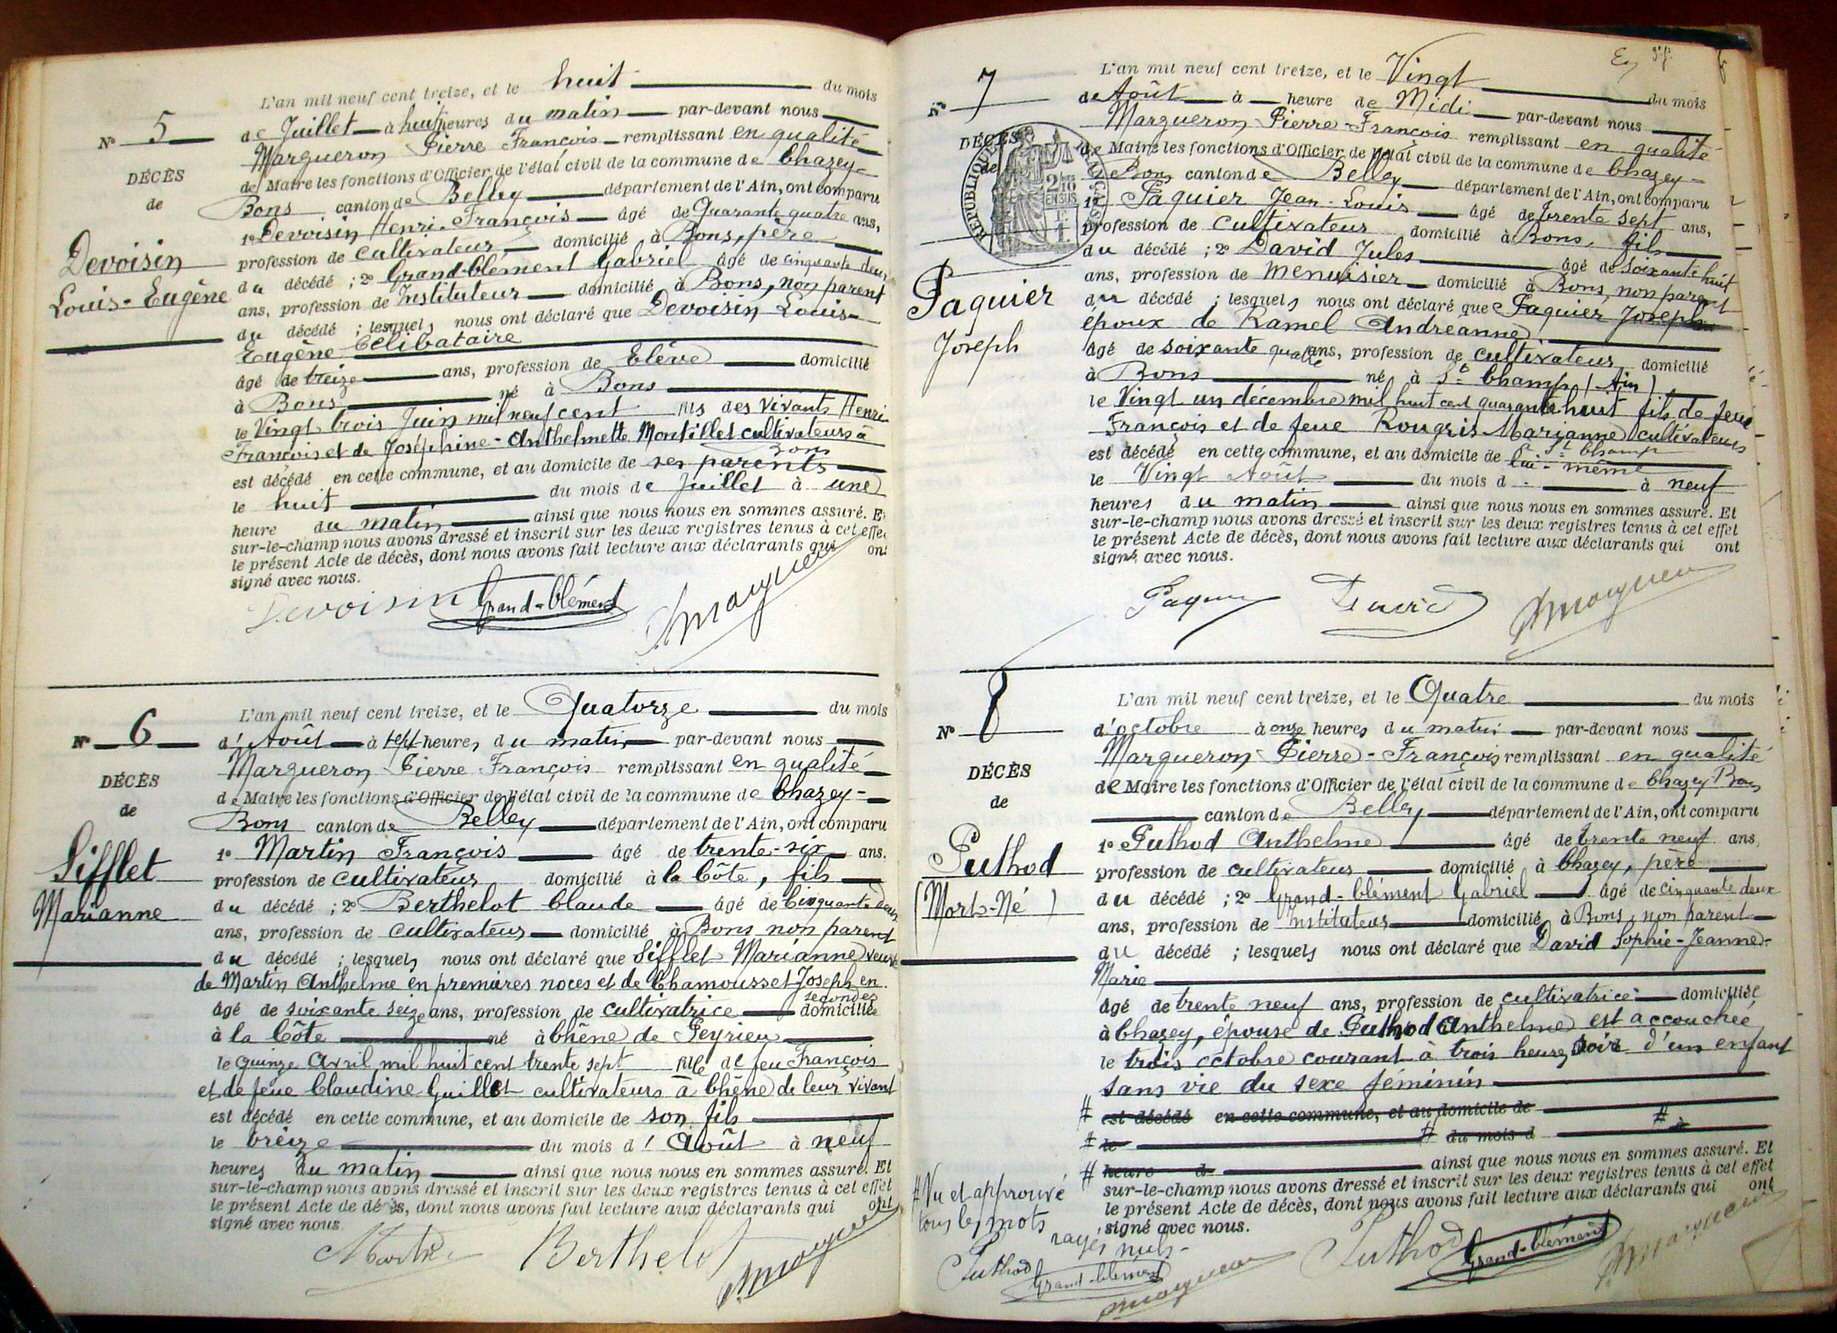 N° 5
DÉCÈS
de
Devoisin
Louis-Eugène
L'an mil neuf cent treize, et le huit du mois
de Juillet à huit heures du matin par-devant nous
Margueron Pierre François remplissant en qualité
de Maire les fonctions d'Officier de l'état civil de la commune de Chazey-
Bons canton de Belley département de l'Ain, ont comparu
1° Devoisin Henri-François âgé de Quarante quatre ans,
profession de cultivateur domicilié à Bons, père
du décédé ; 2° Grand-Clément Gabriel âgé de cinquante deux
ans, profession de Instituteur domicilié à Bons, non parent
du décédé ; lesquels nous ont déclaré que Devoisin Louis-
Eugène Célibataire
âgé de treize ans, profession de Elève domicilié
à Bons né à Bons
le Vingt trois Juin mil neuf cent fils des vivants Henri
François et de Joséphine-Anthelmette Montillet cultivateurs à
Bons
est décédé en cette commune, et au domicile de ses parents
le huit du mois de Juillet à une
heure du matin ainsi que nous nous en sommes assuré. Et
sur-le-champ nous avons dressé et inscrit sur les deux registres tenus à cet effet
le présent Acte de décès, dont nous avons fait lecture aux déclarants qui ont
signé avec nous.
Devoisin Grand-Clément Margueron
N° 6
DÉCÈS
de
Sifflet
Marianne
L'an mil neuf cent treize, et le Quatorze du mois
d'Août à sept heures du matin par-devant nous
Margueron Pierre François remplissant en qualité
de Maire les fonctions d'Officier de l'état civil de la commune de Chazey-
Bons canton de Belley département de l'Ain, ont comparu
1° Martin François âgé de trente-six ans,
profession de cultivateur domicilié à la Côte, fils
du décédé ; 2° Berthelot Claude âgé de Cinquante deux
ans, profession de cultivateur domicilié à Bons non parent
du décédé ; lesquels nous ont déclaré que Sifflet Marianne veuve
de Martin Anthelme en premières noces et de Chamousset Joseph en
secondes
âgé de soixante seize ans, profession de cultivatrice domiciliée
à la Côte né à Chêne de Peyrieu
le quinze Avril mil huit cent trente sept fille de feu François
et de feue Claudine Guillet cultivateurs à Chêne de leur vivant
est décédé en cette commune, et au domicile de son fils
le treize du mois d'Août à neuf
heures du matin ainsi que nous nous en sommes assuré. Et
sur-le-champ nous avons dressé et inscrit sur les deux registres tenus à cet effet
le présent Acte de décès, dont nous avons fait lecture aux déclarants qui ont
signé avec nous
Martin Berthelot Margueron
N° 7
DÉCÈS
de
Paquier
Joseph
RÉPUBLIQUE FRANÇAISE
L'an mil neuf cent treize, et le Vingt du mois
de Août à heure de Midi par-devant nous
Margueron Pierre-François remplissant en qualité
de Maire les fonctions d'Officier de l'état civil de la commune de Chazey-
Bons canton de Belley département de l'Ain, ont comparu
1° Paquier Jean-Louis âgé de trente sept ans,
profession de cultivateur domicilié à Bons, fils
du décédé ; 2° David Jules âgé de soixante huit
ans, profession de menuisier domicilié à Bons, non parent
du décédé ; lesquels nous ont déclaré que Paquier Joseph
époux de Ramel Andreanne
âgé de soixante quatre ans, profession de cultivateur domicilié
à Bons né à St Champ (Ain)
le Vingt un décembre mil huit cent quarante huit fils de feu
François et de feue Rougris Marianne cultivateurs
à St Champ
est décédé en cette commune, et au domicile de lui-même
le Vingt Août du mois d à neuf
heures du matin ainsi que nous nous en sommes assuré. Et
sur-le-champ nous avons dressé et inscrit sur les deux registres tenus à cet effet
le présent Acte de décès, dont nous avons fait lecture aux déclarants qui ont
signé avec nous.
Paquier David Margueron
N° 8
DÉCÈS
de
Puthod
(Mort-Né)
L'an mil neuf cent treize, et le Quatre du mois
d'octobre à onze heures du matin par-devant nous
Margueron Pierre-François remplissant en qualité
de Maire les fonctions d'Officier de l'état civil de la commune de Chazey Bons
canton de Belley département de l'Ain, ont comparu
1° Puthod Anthelme âgé de trente neuf ans,
profession de cultivateur domicilié à Chazey, père
du décédé ; 2° Grand-Clément Gabriel âgé de cinquante deux
ans, profession de Instituteur domicilié à Bons, non parent
du décédé ; lesquels nous ont déclaré que David Sophie-Jeanne-
Marie
âgé de trente neuf ans, profession de cultivatrice domiciliée
à Chazey, épouse de Puthod Anthelme est accouchée
le trois octobre courant à trois heures soir d'un enfant
sans vie du sexe féminin
# est décédé en cette commune, et au domicile de
# le # du mois d # à
# heure d ainsi que nous nous en sommes assuré. Et
sur-le-champ nous avons dressé et inscrit sur les deux registres tenus à cet effet
le présent Acte de décès, dont nous avons fait lecture aux déclarants qui ont
signé avec nous.
Puthod Grand-Clément Margueron
# Vu et approuvé
tous les mots
rayés nuls.
Puthod
Grand-Clément
Margueron